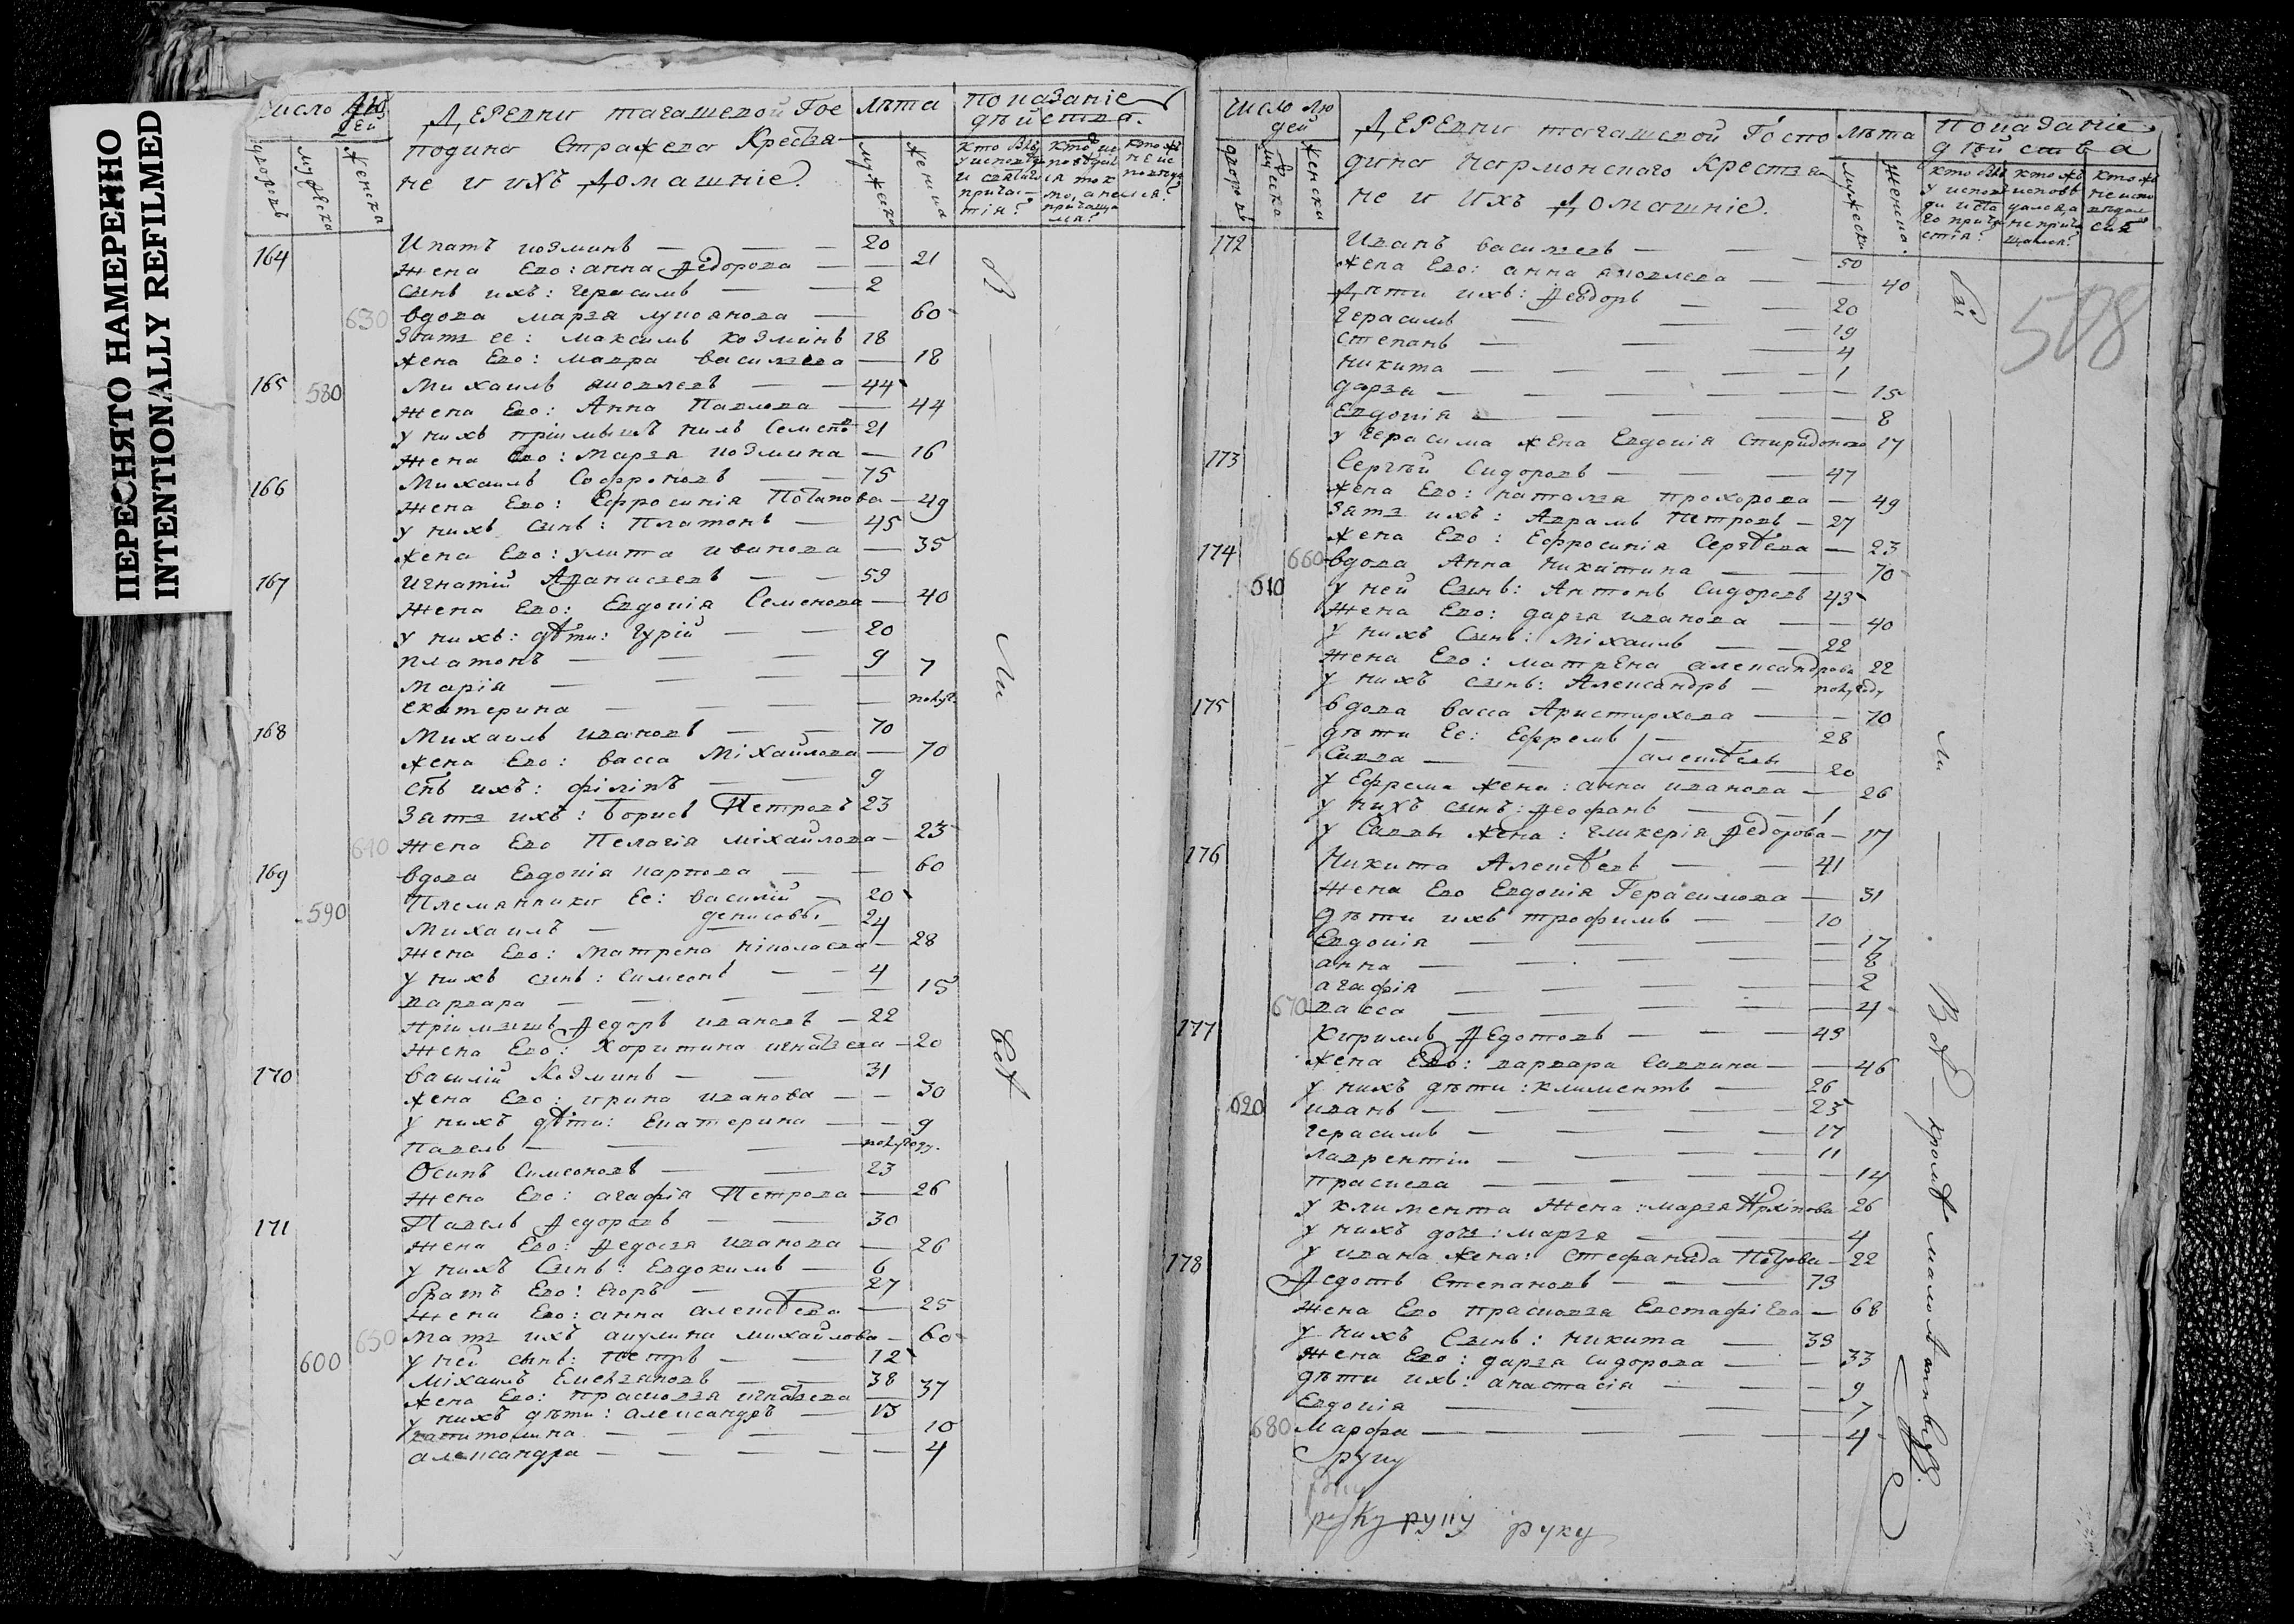 ПЕРЕСНЯТО НАМЕРЕННО
INTENTIONALLY REFILMED
число людей
дворовъ
мужеска
женска
Деревни тагашевой Гос
подина Стражева Крестья
не и ихъ Домашніе.
лѣта
мужеска
женска
показаніе
дѣйства.
164
Ипатъ козминъ — 20
жена Ево: анна Ѳедорова — 21
сынъ ихъ: герасимъ — 2
630 вдова марья лукоянова — 60
Зять ее: максимъ козминъ 18
жена Ево: мавра васильева — 18
165 580 Михаилъ яковлевъ — 44
жена Ево: Анна Павлова — 44
у нихъ пріимышъ нилъ Семеновъ 21
жена Ево: Марья козмина — 16
166 Михаилъ Софроновъ — 75
жена Ево: Ефросинія Потапова — 49
у нихъ сынъ: Платонъ — 45
жена Ево: улита иванова — 35
167 Игнатій Аѳанасьевъ — 59
жена Ево: Евдокія Семенова — 40
у нихъ: дѣти: гурій — 20
платонъ — 9
марія — 7
екатерина —
168 Михаилъ ивановъ — 70
жена Ево: васса Міхайлова — 70
снъ ихъ: філіпъ — 9
Зять ихъ: борисъ Петровъ 23
610 жена Ево Пелагія міхайлова — 23
169 вдова Евдокія карпова — 60
Племянники Ее: василій — 20
590 Михаилъ — денисовы — 24
жена Ево: матрена ніколаева — 28
у нихъ сынъ: симеонъ — 4
варвара — 15
пріимышъ Ѳедоръ ивановъ — 22
жена Ево: Харитина игнатьева — 20
170 василій Козминъ — 31
жена Ево: ирина иванова — 30
у нихъ дѣти: Екатерина — 9
павелъ — полугоду.
Осипъ Симеоновъ — 23
жена Ево: агафія Петрова — 26
171 Павелъ Ѳедоровъ — 30
жена Ево: Ѳедосья иванова — 26
у нихъ Сынъ: Евдокимъ — 6
братъ Ево: Егоръ — 27
жена Ево: анна алексѣева — 25
650 мать ихъ акулина михайлова — 60
600 у ней сынъ: петръ — 12
міхаилъ Емельяновъ — 38
жена Ево: прасковья игнатьева — 37
у нихъ дѣти: александръ — 13
капитолина — 10
александра — 4
В
сѣ
Ли
были
число людей
дворовъ
мужеска
женска
Деревни тагашевой Госпо
дина нармонскаго Крестья
не и ихъ Домашніе.
лѣта
мужеска
женска
показаніе
дѣйства
508
172 Иванъ васильевъ — 50
жена Ево: анна яковлева — 40
Дѣти ихъ: Ѳеодоръ — 20
герасимъ — 19
степанъ — 4
никита — 1
дарья — 15
евдокія — 8
у герасима жена Евдокія Спиридонова 17
173 Сергѣй Сидоровъ — 47
жена Ево: наталья прохорова — 49
зять ихъ: Авраамъ Петровъ — 27
жена Ево: Ефросинія Сергѣева — 23
174 660 вдова Анна никитина — 70
610 у ней Сынъ: Антонъ Сидоровъ 43
жена Ево: дарья иванова — 40
у нихъ Сынъ: міхаилъ — 22
жена Ево: матрена александрова 22
у нихъ сынъ: Александръ — полугоду
175 вдова васса Аристархова — 70
дѣти Ее: Ефремъ — 28
Савва — алексѣевы 20
у Ефрема жена: анна иванова — 26
у нихъ сынъ: Ѳеофанъ — 1
у Саввы жена: гликерія Ѳедорова — 17
176 Никита Алексѣевъ — 41
жена Ево Евдокія Герасимова — 31
дѣти ихъ трофимъ — 10
Евдокія — 17
анна — 8
агафія — 2
670 васса — 4
177 Кирилъ Ѳедотовъ — 49
жена Ево: варвара саввина — 46
у нихъ дѣти: климентъ — 26
620 иванъ — 25
герасимъ — 17
лаврентій — 11
прасковья — 14
у климента жена: марья Архіпова 26
у нихъ дочь: марья — 4
у ивана жена: Стефанида Петрова — 22
178 Ѳедотъ Степановъ — 73
жена Ево прасковья Евстафіева — 68
у нихъ Сынъ: никита — 39
жена Ево: дарья сидорова — 33
дѣти ихъ: анастасія — 9
Евдокія — 7
680 Марфа — 4
руку
руку руку руку
кромѣ малолѣтныхъ